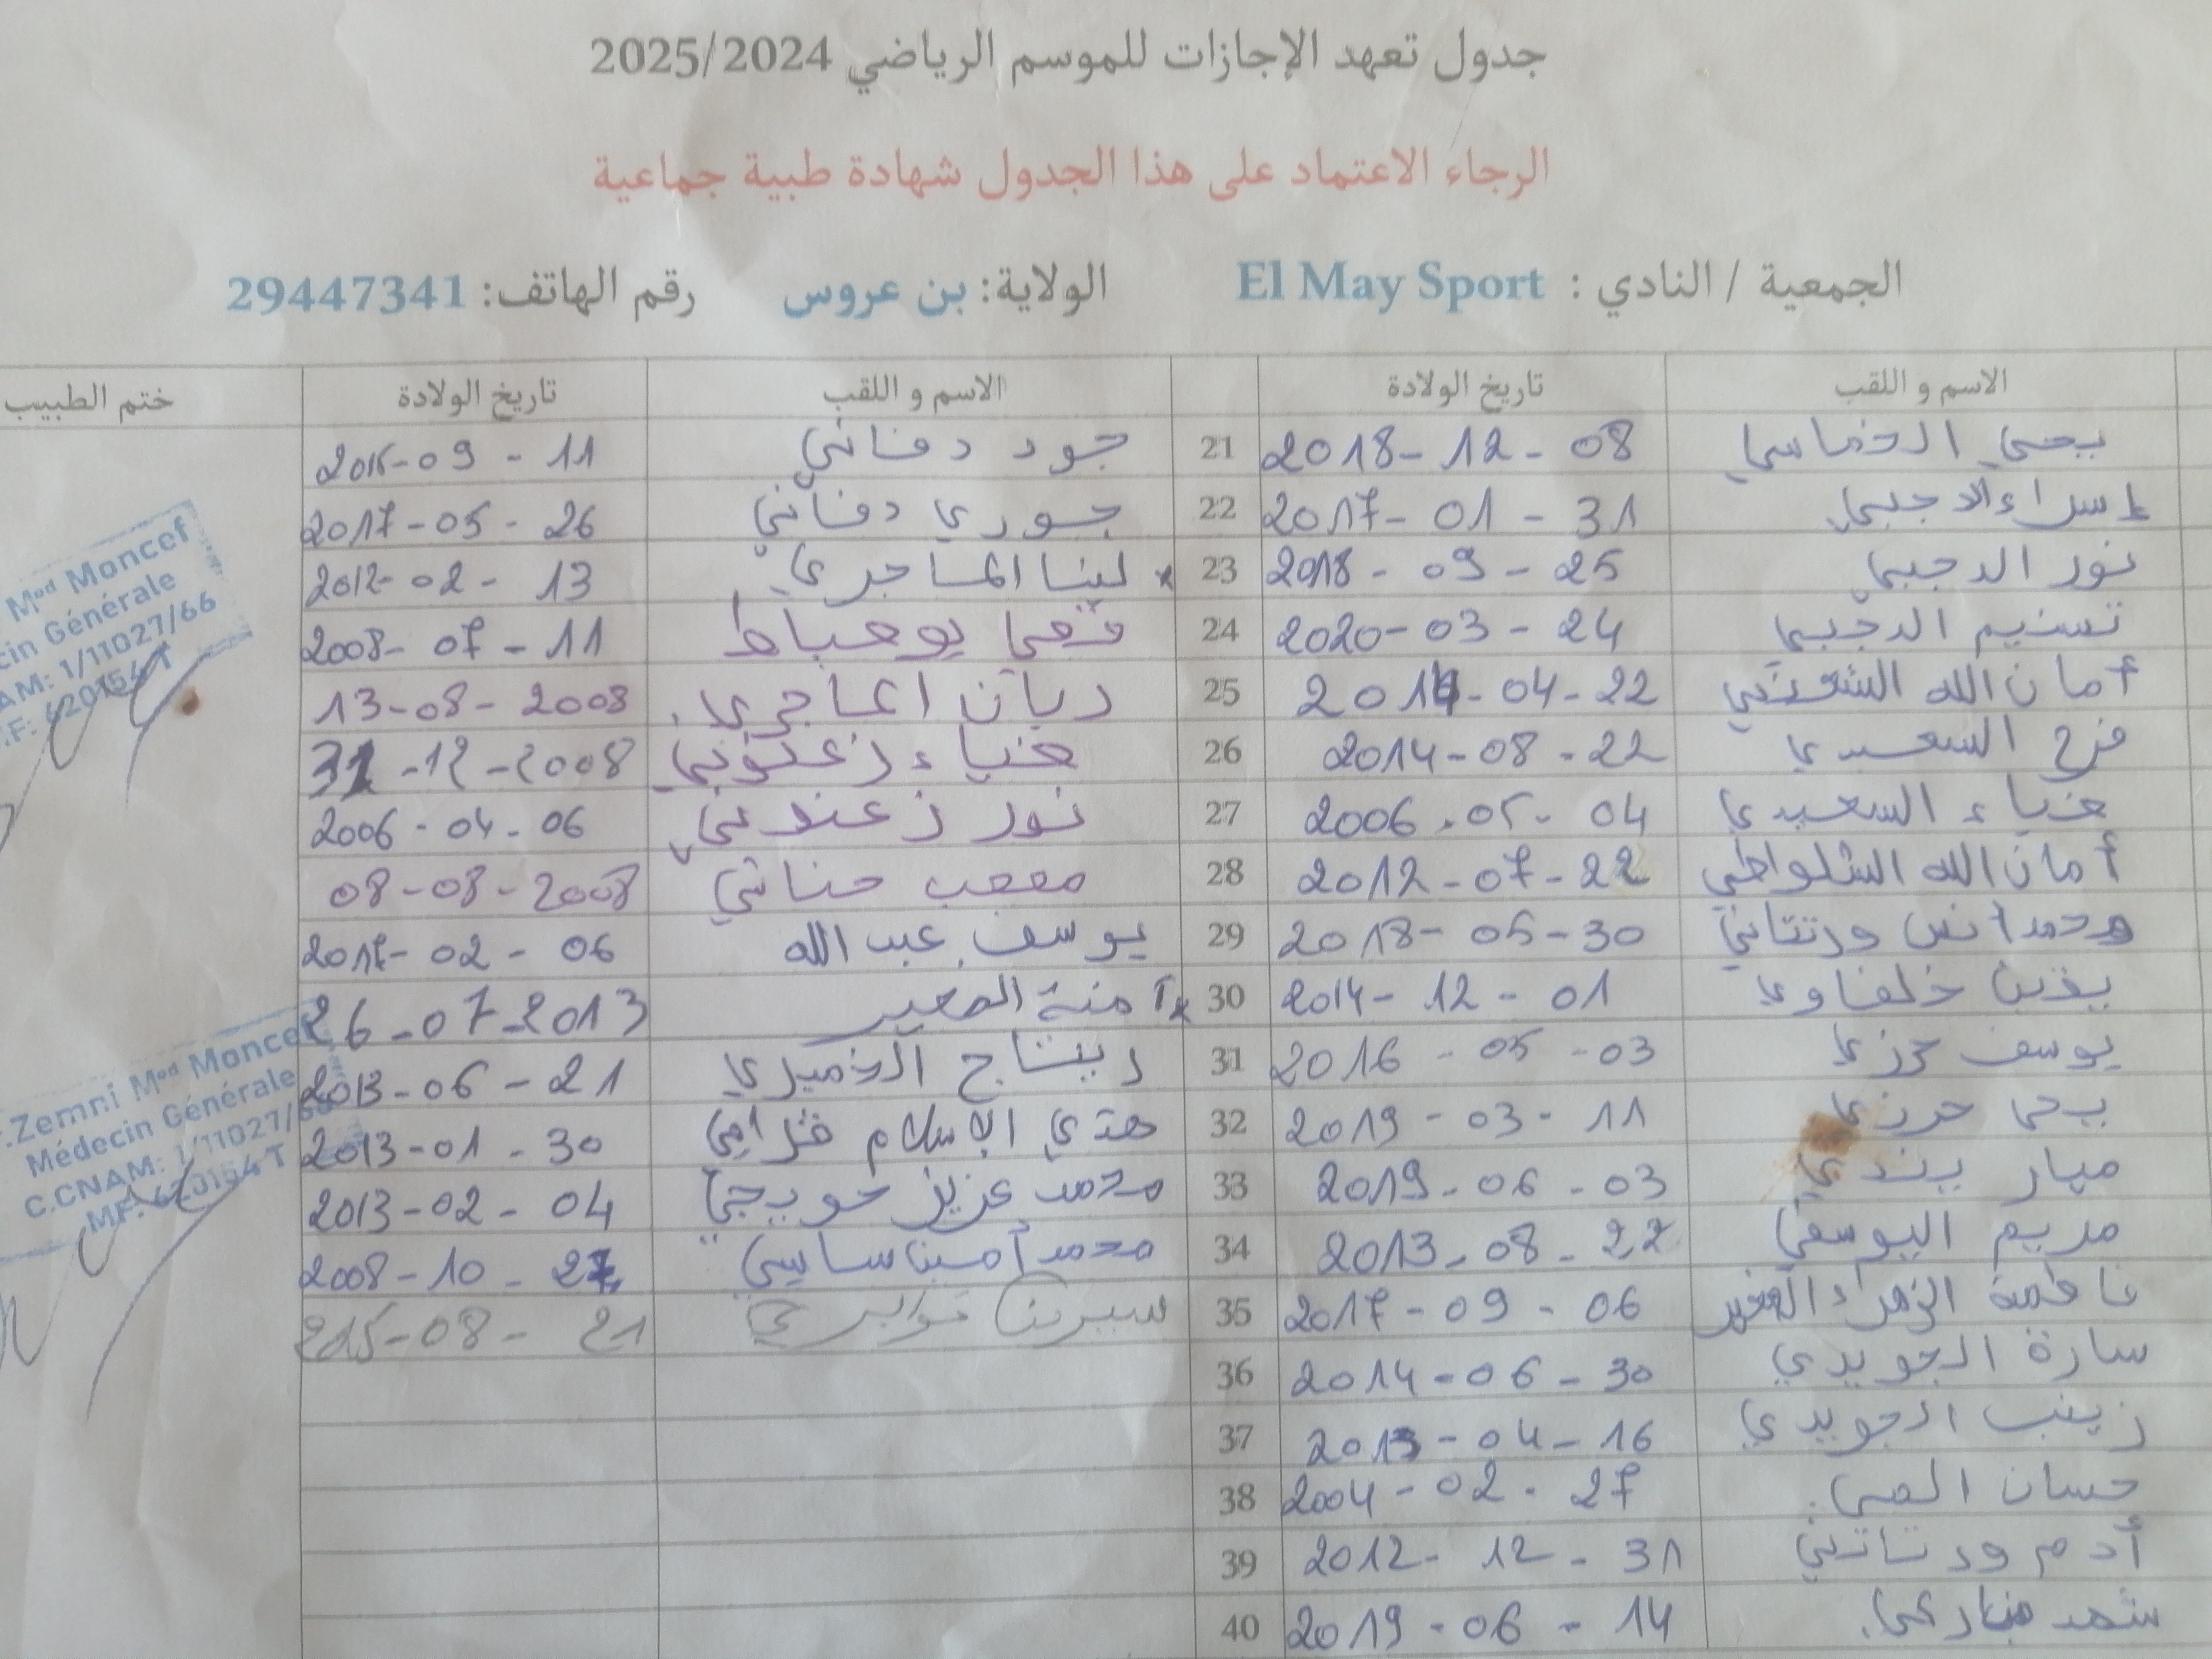 جدول تعهد الإجازات للموسم الرياضي 2025/2024
الرجاء الاعتماد على هذا الجدول شهادة طبية جماعية
الجمعية / النادي : El May Sport الولاية: بن عروس رقم الهاتف: 29447341
الاسم و اللقب تاريخ الولادة الاسم و اللقب تاريخ الولادة ختم الطبيب
يحي الخماسي 2018-12-08 21 جود دفاني 2016-09-11
إسراء الدجبي 2017-01-31 22 جوري دفاني 2017-05-26
نور الدجبي 2018-09-25 23 لينا الماجري 2012-02-13
تسنيم الدجبي 2020-03-24 24 2008-07-11
أمان الله 2014-04-22 25 ريان الماجري 13-08-2008
فرح السعيدي 2014-08-22 26 ضياء زعنوني 31-12-2008
ضياء السعيدي 2006-05-04 27 نور زعنوني 2006-04-06
أمان الله الشلواطي 2012-07-22 28 مصعب حناشي 08-08-2008
محمد أنس ورتتاني 2018-05-30 29 يوسف عبد الله 2017-02-06
يقين خلفاوي 2014-12-01 30 آمنة الصغير 26-07-2013
يوسف حرزي 2016-05-03 31 ريتاج الخميري 2013-06-21
يحي حرزي 2019-03-11 32 هدى الإسلام 2013-01-30
ميار 2019-06-03 33 محمد عزيز 2013-02-04
مريم اليوسفي 2013-08-22 34 محمد أمين ساسي 2008-10-27
فاطمة الزهراء الصغير 2017-09-06 35 سيرين 215-08-21
سارة الجويدي 2014-06-30 36
زينب الجويدي 2013-04-16 37
حسان 2004-02-27 38
أدم ورتاتني 2012-12-31 39
شهد 2019-06-14 40
Med Moncef
Médecin Générale
1/11027/66
620154 T
Zemni Med Moncef
Médecin Générale
C.CNAM: 1/11027/66
MF: 620154 T